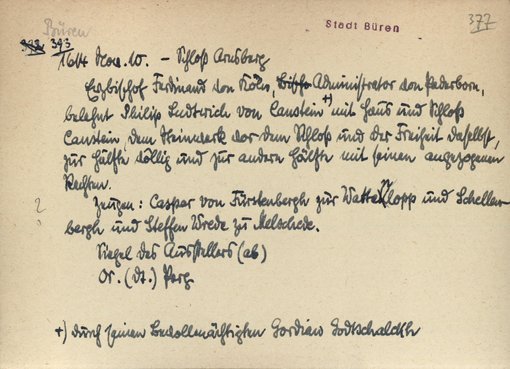 Büren
Stadt Büren
377
392 393
1614 Nov. 10. – Schloß Arnsberg
Erzbischof Ferdinand von Köln, Bischo Administrator von Paderborn,
belehnt Philip Ludtwich von Canstein +) mit Haus und Schloß
Canstein dem Steinwerk vor dem Schloß und der Freiheit daselbst,
zur Hälfte völlig und zur andern Hälfte mit seinen angezogenen
Rechten.
? Zeugen: Caspar von Fürstenbergh zur Watterlapp und Schellen-
bergh und Steffen Wrede zu Melschede.
Siegel des Ausstellers (ab)
Or. (dt.) Perg.
+) durch seinen Bevollmächtigten Gordian Godtschalckh